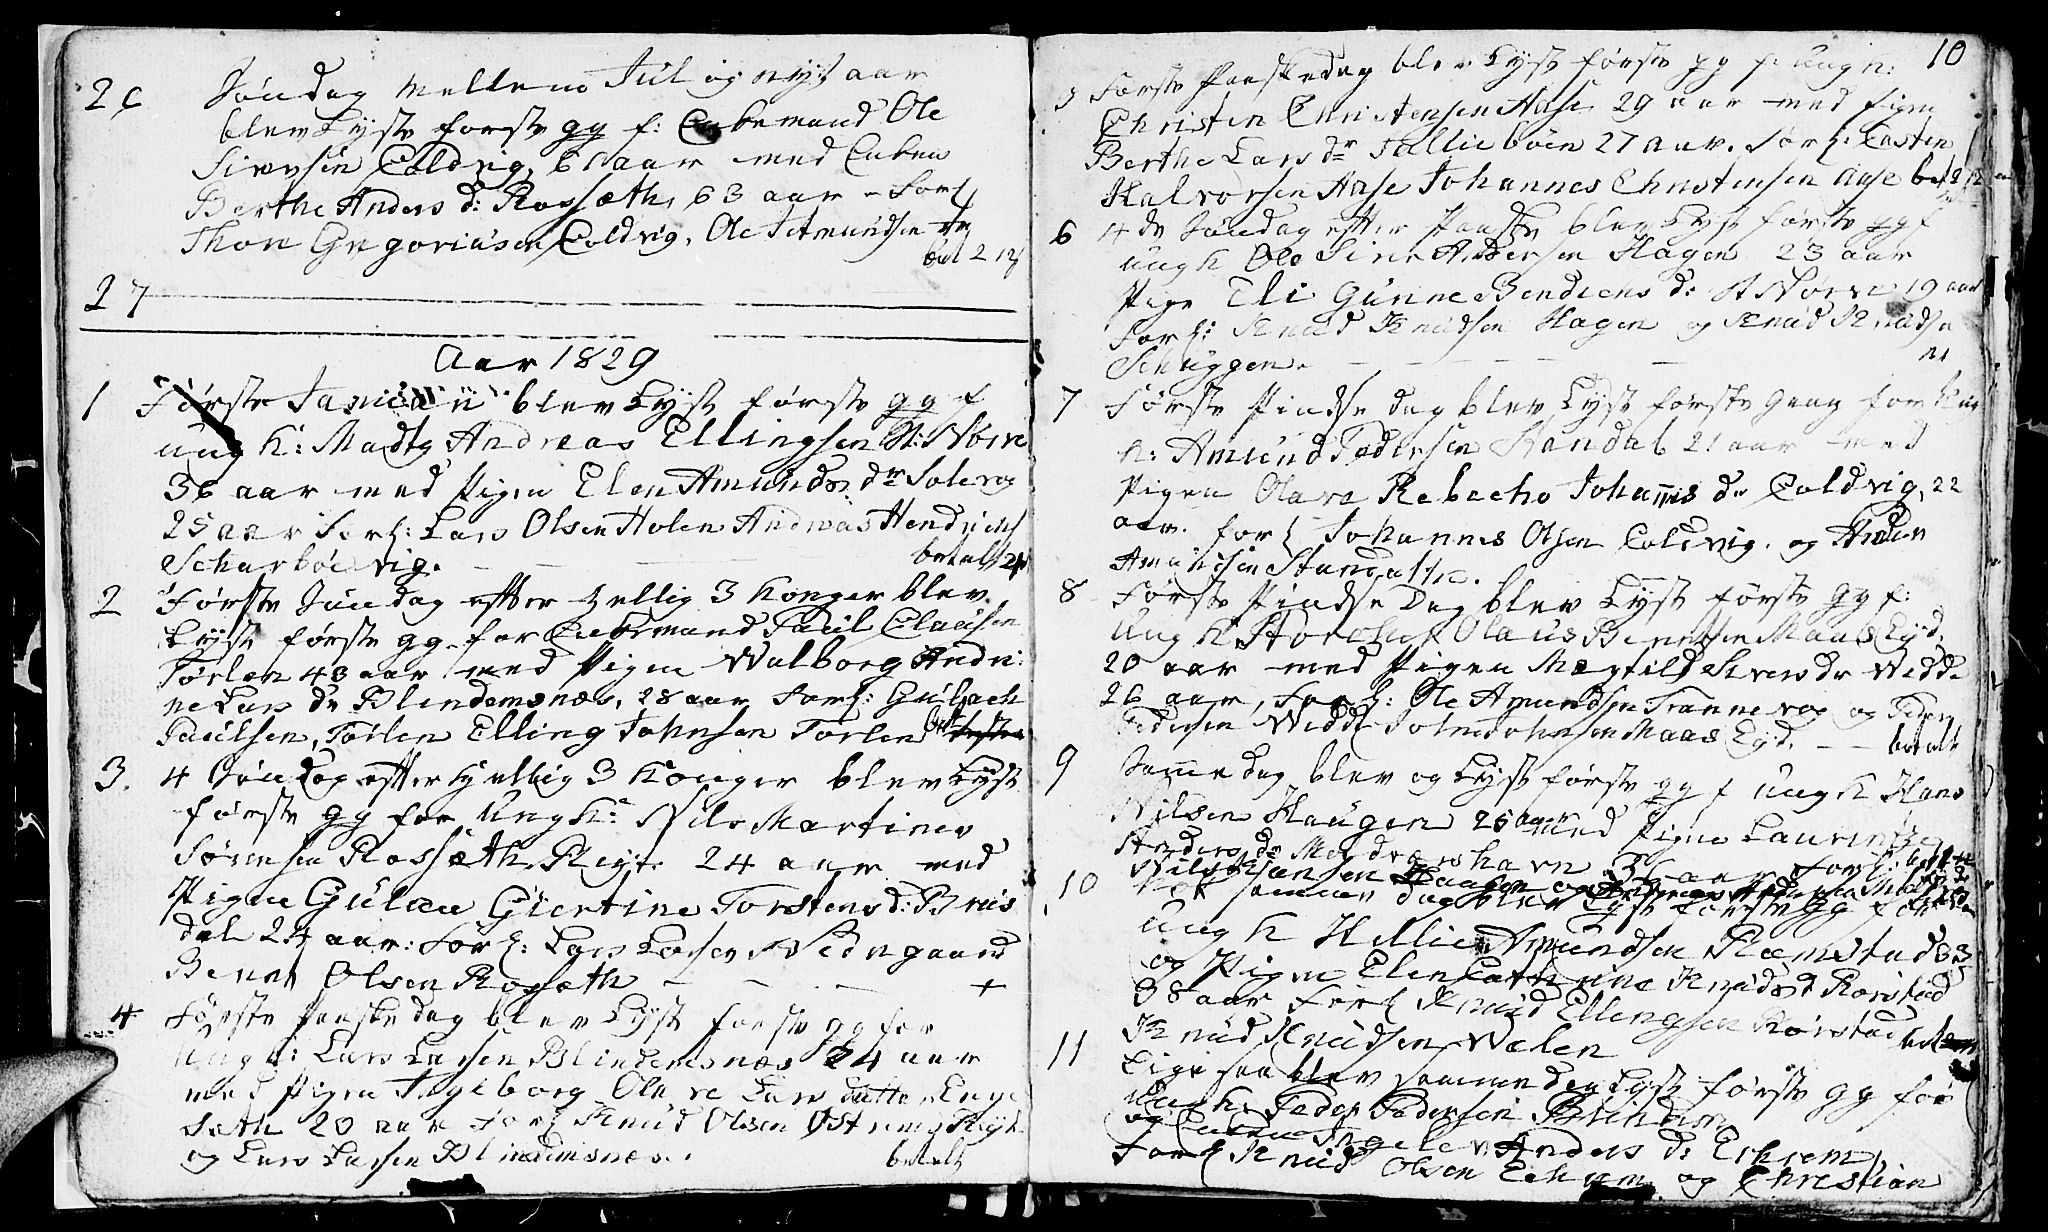 26 Søndag mellem Jul og nyt aar
blev Lyst første gg f: Enkemand Ole
Sivesen Coldvig, 61 aar med Enken
Berthe Anders d: Rossæth, 63 aar - Forl
Thore Gregoriusen Coldvig, Ole Amundsen
bet 2
27
Aar 1829
1 Første Januarii blev Lyst første gg f
ung k: Madts Andreas Ellingsen St: Nørve
36 aar med Pigen Elen Amunds dr Solevog
25 aar Forl: Lars Olsen Holen Andreas Hendrichs
Scharbøevig. betalt
2 Første Søndag efter hellig 3 Konger blev
Lyst første gg for Enkemand Paul Clausen
Tørlen 43 aar med Pigen Walborg Andri
ne Lars dr Blindemsnæs, 28 aar Forl: Gulbach
Paulsen, Tørlen Elling Johnsen Tørlen
3. 4 Søndag efter hellig 3 Konger blev Lyst
første gg for Ung K: Nils Martinus
Sørensen Rossæth 24 aar med
Pigen Gulæa Giertine Torstens d: Brus
dal 24 aar: Forl: Lars Larsen Nedregaard
Bernt Olsen Rossæth +
4 Første Paaske dag blev Lyst første gg for
Ung k: Lars Larsen Blindemsnæs 24 aar
med Pigen Ingeborg Olave Lars datter Enge
sæth 20 aar Forl Knud Olsen Østrem
og Lars Larsen Blindemsnæs. betalt
10
5 Første Paaskedag blev Lyst første gg f: ung k:
Christen Christensen Aase 29 aar med Pigen
Berthe Lars dr Talliebøen 27 aar. Forl: Casten
Halvorsen Aase Johannes Christensen Aase bet
6 4de Søndag efter Paaske blev Lyst første gg f
ung k Ole Sivert Andersen Hagen 23 aar
Pige Eli Gunne Bendichs d: St Nørve 19 aar
Forl: Knud Knudsen Hagen og Knud Knudsen
Schuggen.
7 Første Pindse dag blev Lyst første Gang for Ung
k: Amund Pedersen Standal 21 aar med
Pigen Olave Rebecha Johannis dr Coldvig, 22
aar. forl Johannes Olsen Coldvig. og Peder
Amundsen Standal
8 Første Pindse Dag blev Lyst første gg f:
Ung K Olaus Berntsen Maas Eyd.
20 aar med Pigen Magtild Sivers dr Wedde
26 aar, Forl: Ole Amundsen Trannevog og Peder
Pedersen Wedde John Johnsen Maas Eyd. betalt
9 Samme dag blev og Lyst første gg f ung k Hans
Nilsen Haugen 25 aar med Pigen Laurentze
Anders dr 36 aar Forl:
Nils Hansen Haugen og Andreas
10 Nok samme dag blev Lyst første gg for
Ung K Hellie Amundsen Ræmstad 33
og Pigen Elen Cathrine Knuds d Rørstad
38 aar Forl Knud Ellingsen Rørstad
Knud Knudsen Wælen
11 Lige saa blev samme dag Lyst første gg for
Ung k Peder Pedersen Blindem
og Enken Ingelev Anders d: Echrem
Forl Knud Olsen Echrem og Christian